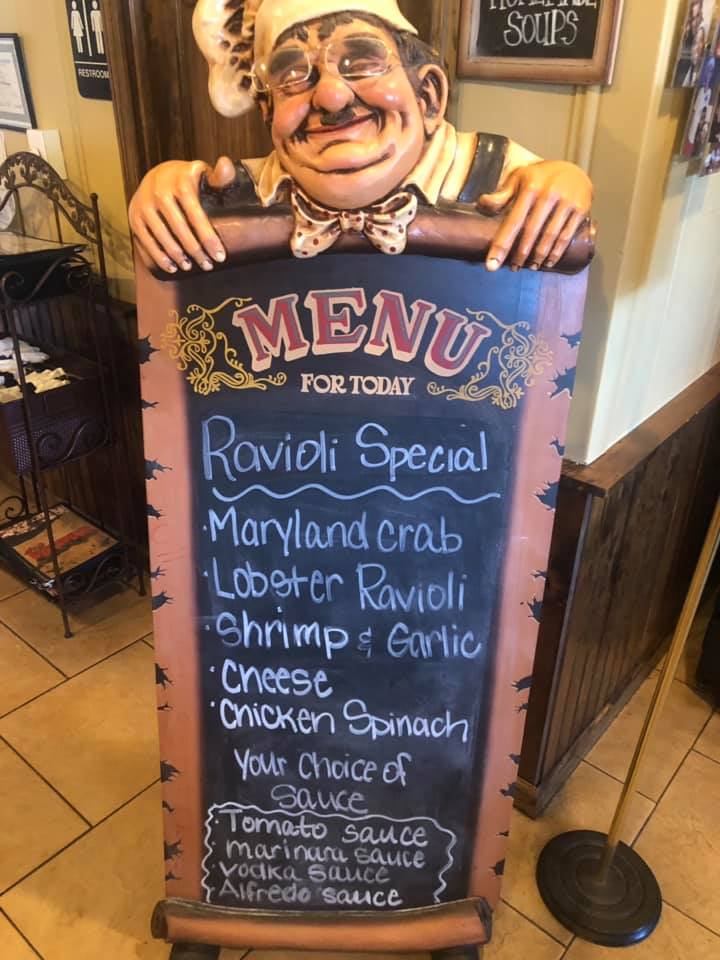 RESTROOM
SOUPS
MENU
FOR TODAY
Ravioli Special
·Maryland crab
·Lobster Ravioli
·Shrimp & Garlic
·Cheese
·Chicken Spinach
Your Choice of
Sauce
·Tomato sauce
·marinara sauce
Vodka Sauce
·Alfredo sauce